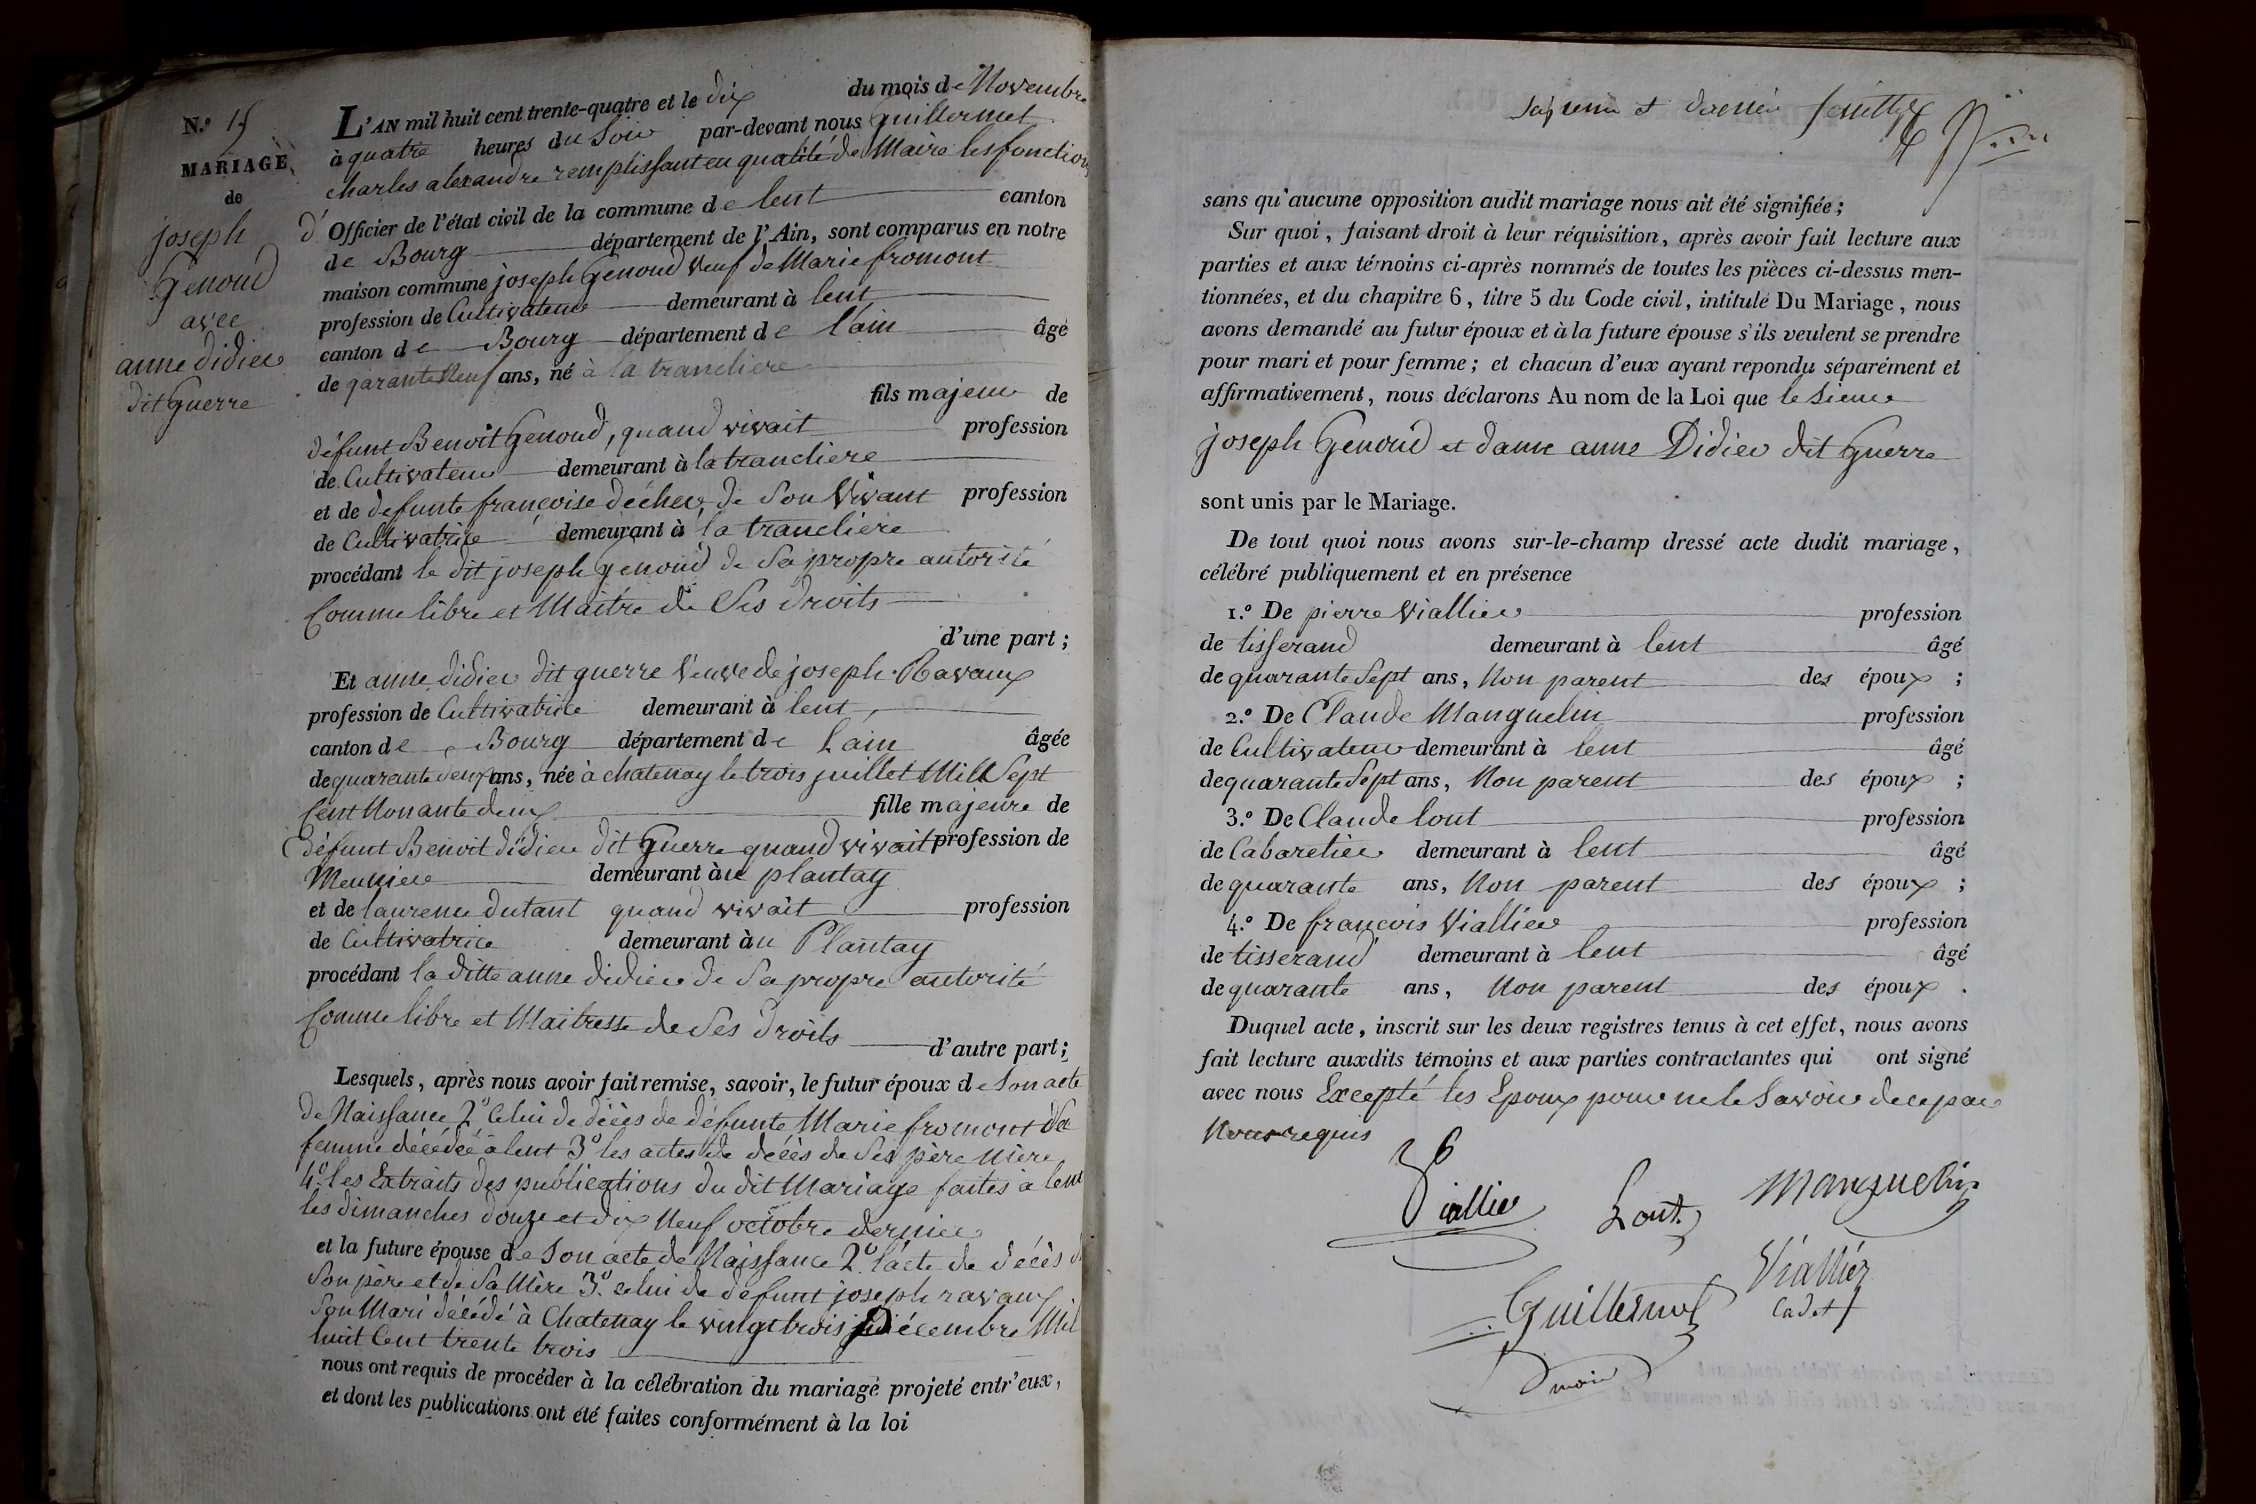 N.º 15
MARIAGE
de
joseph
Genoud
avec
anne didier
dit Guerre
L'AN mil huit cent trente-quatre et le dix du mois de Novembre
à quatre heures du Soir par-devant nous Guillermet
charles alexandre remplissant en qualité de Maire les fonctions
d'Officier de l'état civil de la commune de lent canton
de Bourg département de l'Ain, sont comparus en notre
maison commune joseph Genoud Veuf de Marie fromont
profession de Cultivateur demeurant à lent
canton de Bourg département de l'ain âgé
de qarante Neuf ans, né à la trancliere
fils majeur de
défunt Benoît Genoud, quand vivait profession
de Cultivateur demeurant à la trancliere
et de defunte françoise décher, de Son Vivant profession
de Cultivatrice demeurant à la trancliere
procédant le dit joseph Genoud de Sa propre autorité
Comme libre et Maitre de Ses droits
d'une part ;
Et anne didier dit guerre Veuve de joseph Ravaux
profession de Cultivatrice demeurant à lent
canton de Bourg département de L'ain âgée
de quarante deux ans, née à chatenay le trois juillet Mill Sept
Cent Nonante deux fille majeure de
défunt Benoit didier dit Guerre quand vivait profession de
Meunier demeurant àu plantay
et de laurence dutant quand vivait profession
de Cultivatrice demeurant àu Plantay
procédant la ditte anne didier de Sa propre autorité
Comme libre et Maitresse de Ses droits
d'autre part ;
Lesquels, après nous avoir fait remise, savoir, le futur époux de Son acte
de Naissance 2º Celui de décès de défunte Marie fromont Sa
femme décédée à lent 3º les actes de décès de Ses père Mère
4º les Extraits des publications du dit Mariage faites à lent
les dimanches douze et dix Neuf octobre dernier
et la future épouse de Son acte de Naissance 2º l'acte de décès de
Son père et de Sa Mère 3º celui de défunt joseph ravaux
Son Mari décédé à Chatenay le vingt trois décembre Mil
huit Cent trente trois
nous ont requis de procéder à la célébration du mariage projeté entr'eux,
et dont les publications ont été faites conformément à la loi
et dernier feuillet
sans qu'aucune opposition audit mariage nous ait été signifiée ;
Sur quoi, faisant droit à leur réquisition, après avoir fait lecture aux
parties et aux témoins ci-après nommés de toutes les pièces ci-dessus men-
tionnées, et du chapitre 6, titre 5 du Code civil, intitulé Du Mariage, nous
avons demandé au futur époux et à la future épouse s'ils veulent se prendre
pour mari et pour femme ; et chacun d'eux ayant repondu séparément et
affirmativement, nous déclarons Au nom de la Loi que le Sieur
joseph Genoud et dame anne Didier dit Guerre
sont unis par le Mariage.
De tout quoi nous avons sur-le-champ dressé acte dudit mariage,
célébré publiquement et en présence
1.º De pierre Viallier profession
de tisserand demeurant à lent âgé
de quarante Sept ans, Non parent des époux ;
2.º De Claude Manguelin profession
de Cultivateur demeurant à lent âgé
de quarante Sept ans, Non parent des époux ;
3.º De Claude lout profession
de Cabaretier demeurant à lent âgé
de quarante ans, Non parent des époux ;
4.º De françois Viallier profession
de tisserand demeurant à lent âgé
de quarante ans, Non parent des époux .
Duquel acte, inscrit sur les deux registres tenus à cet effet, nous avons
fait lecture auxdits témoins et aux parties contractantes qui ont signé
avec nous Excepté les Epoux pour ne le Savoir de ce par
Nous requis
Viallier Lout Manguelin
Viallier
Cadet
Guillermet
maire